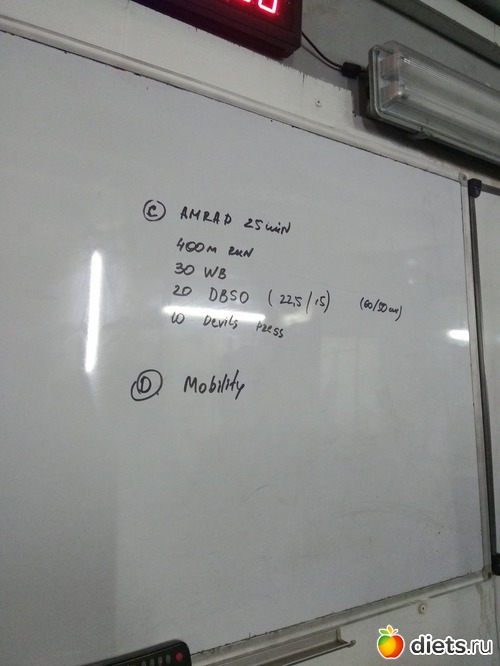 C AMRAP 25 min
400m run
30 WB
20 DBSO (22,5/15) (60/50cm)
10 Devils press
D Mobility
diets.ru